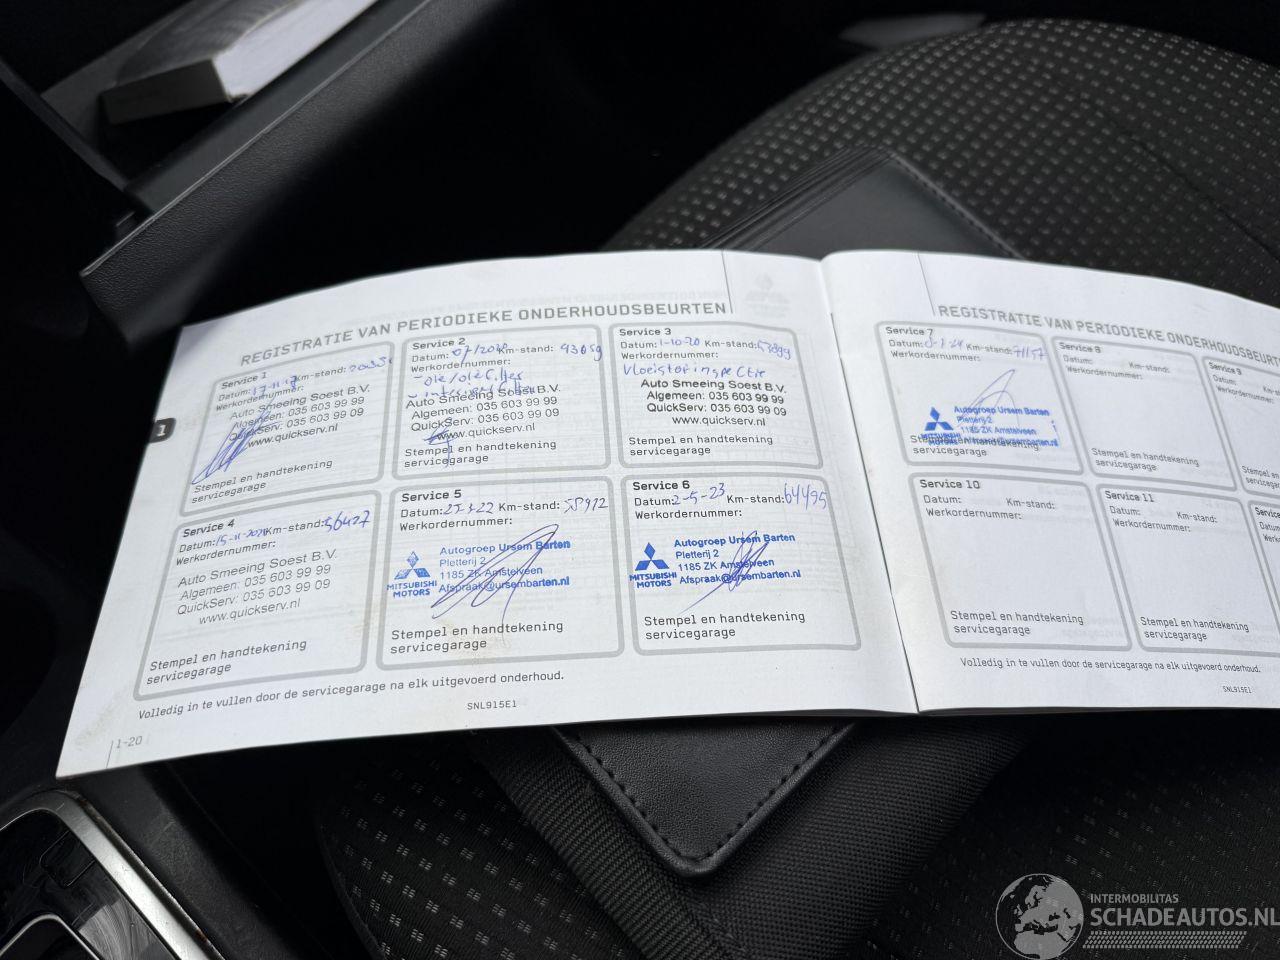 REGISTRATIE VAN PERIODIEKE ONDERHOUDSBEURTEN
Service 1
Datum: Km-stand:
Werkordernummer:
Auto Smeeing Soest B.V.
Algemeen: 035 603 99 99
QuickServ: 035 603 99 09
www.quickserv.nl
Stempel en handtekening
servicegarage
Service 2
Datum: 07/2020 Km-stand: 43059
Werkordernummer:
- olie/oliefilter
- interieurfilter
Auto Smeeing Soest B.V.
Algemeen: 035 603 99 99
QuickServ: 035 603 99 09
www.quickserv.nl
Stempel en handtekening
servicegarage
Service 3
Datum: 1-10-20 Km-stand:
Werkordernummer:
Vloeistof inspectie
Auto Smeeing Soest B.V.
Algemeen: 035 603 99 99
QuickServ: 035 603 99 09
www.quickserv.nl
Stempel en handtekening
servicegarage
1
Service 4
Datum: 15-11-2021 Km-stand: 56427
Werkordernummer:
Auto Smeeing Soest B.V.
Algemeen: 035 603 99 99
QuickServ: 035 603 99 09
www.quickserv.nl
Stempel en handtekening
servicegarage
Service 5
Datum: Km-stand: 58912
Werkordernummer:
MITSUBISHI
MOTORS
Autogroep Ursem Barten
Pletterij 2
1185 ZK Amstelveen
Afspraak@ursembarten.nl
Stempel en handtekening
servicegarage
Service 6
Datum: 2-5-23 Km-stand: 64495
Werkordernummer:
MITSUBISHI
MOTORS
Autogroep Ursem Barten
Pletterij 2
1185 ZK Amstelveen
Afspraak@ursembarten.nl
Stempel en handtekening
servicegarage
Volledig in te vullen door de servicegarage na elk uitgevoerd onderhoud.
SNL915E1
1-20
REGISTRATIE VAN PERIODIEKE ONDERHOUDSBEURT
Service 7
Datum: Km-stand: 71157
Werkordernummer:
MITSUBISHI
Autogroep Ursem Barten
Pletterij 2
1185 ZK Amstelveen
Afspraak@ursembarten.nl
Stempel en handtekening
servicegarage
Service 8
Datum: Km-stand:
Werkordernummer:
Stempel en handtekening
servicegarage
Service 9
Datum:
Werkordernummer:
Stempel en
servicega
Service 10
Datum: Km-stand:
Werkordernummer:
Stempel en handtekening
servicegarage
Service 11
Datum: Km-stand:
Werkordernummer:
Stempel en handtekening
servicegarage
Service
Datum:
Volledig in te vullen door de servicegarage na elk uitgevoerd onderhoud.
SNL915E1
INTERMOBILITAS
SCHADEAUTOS.NL